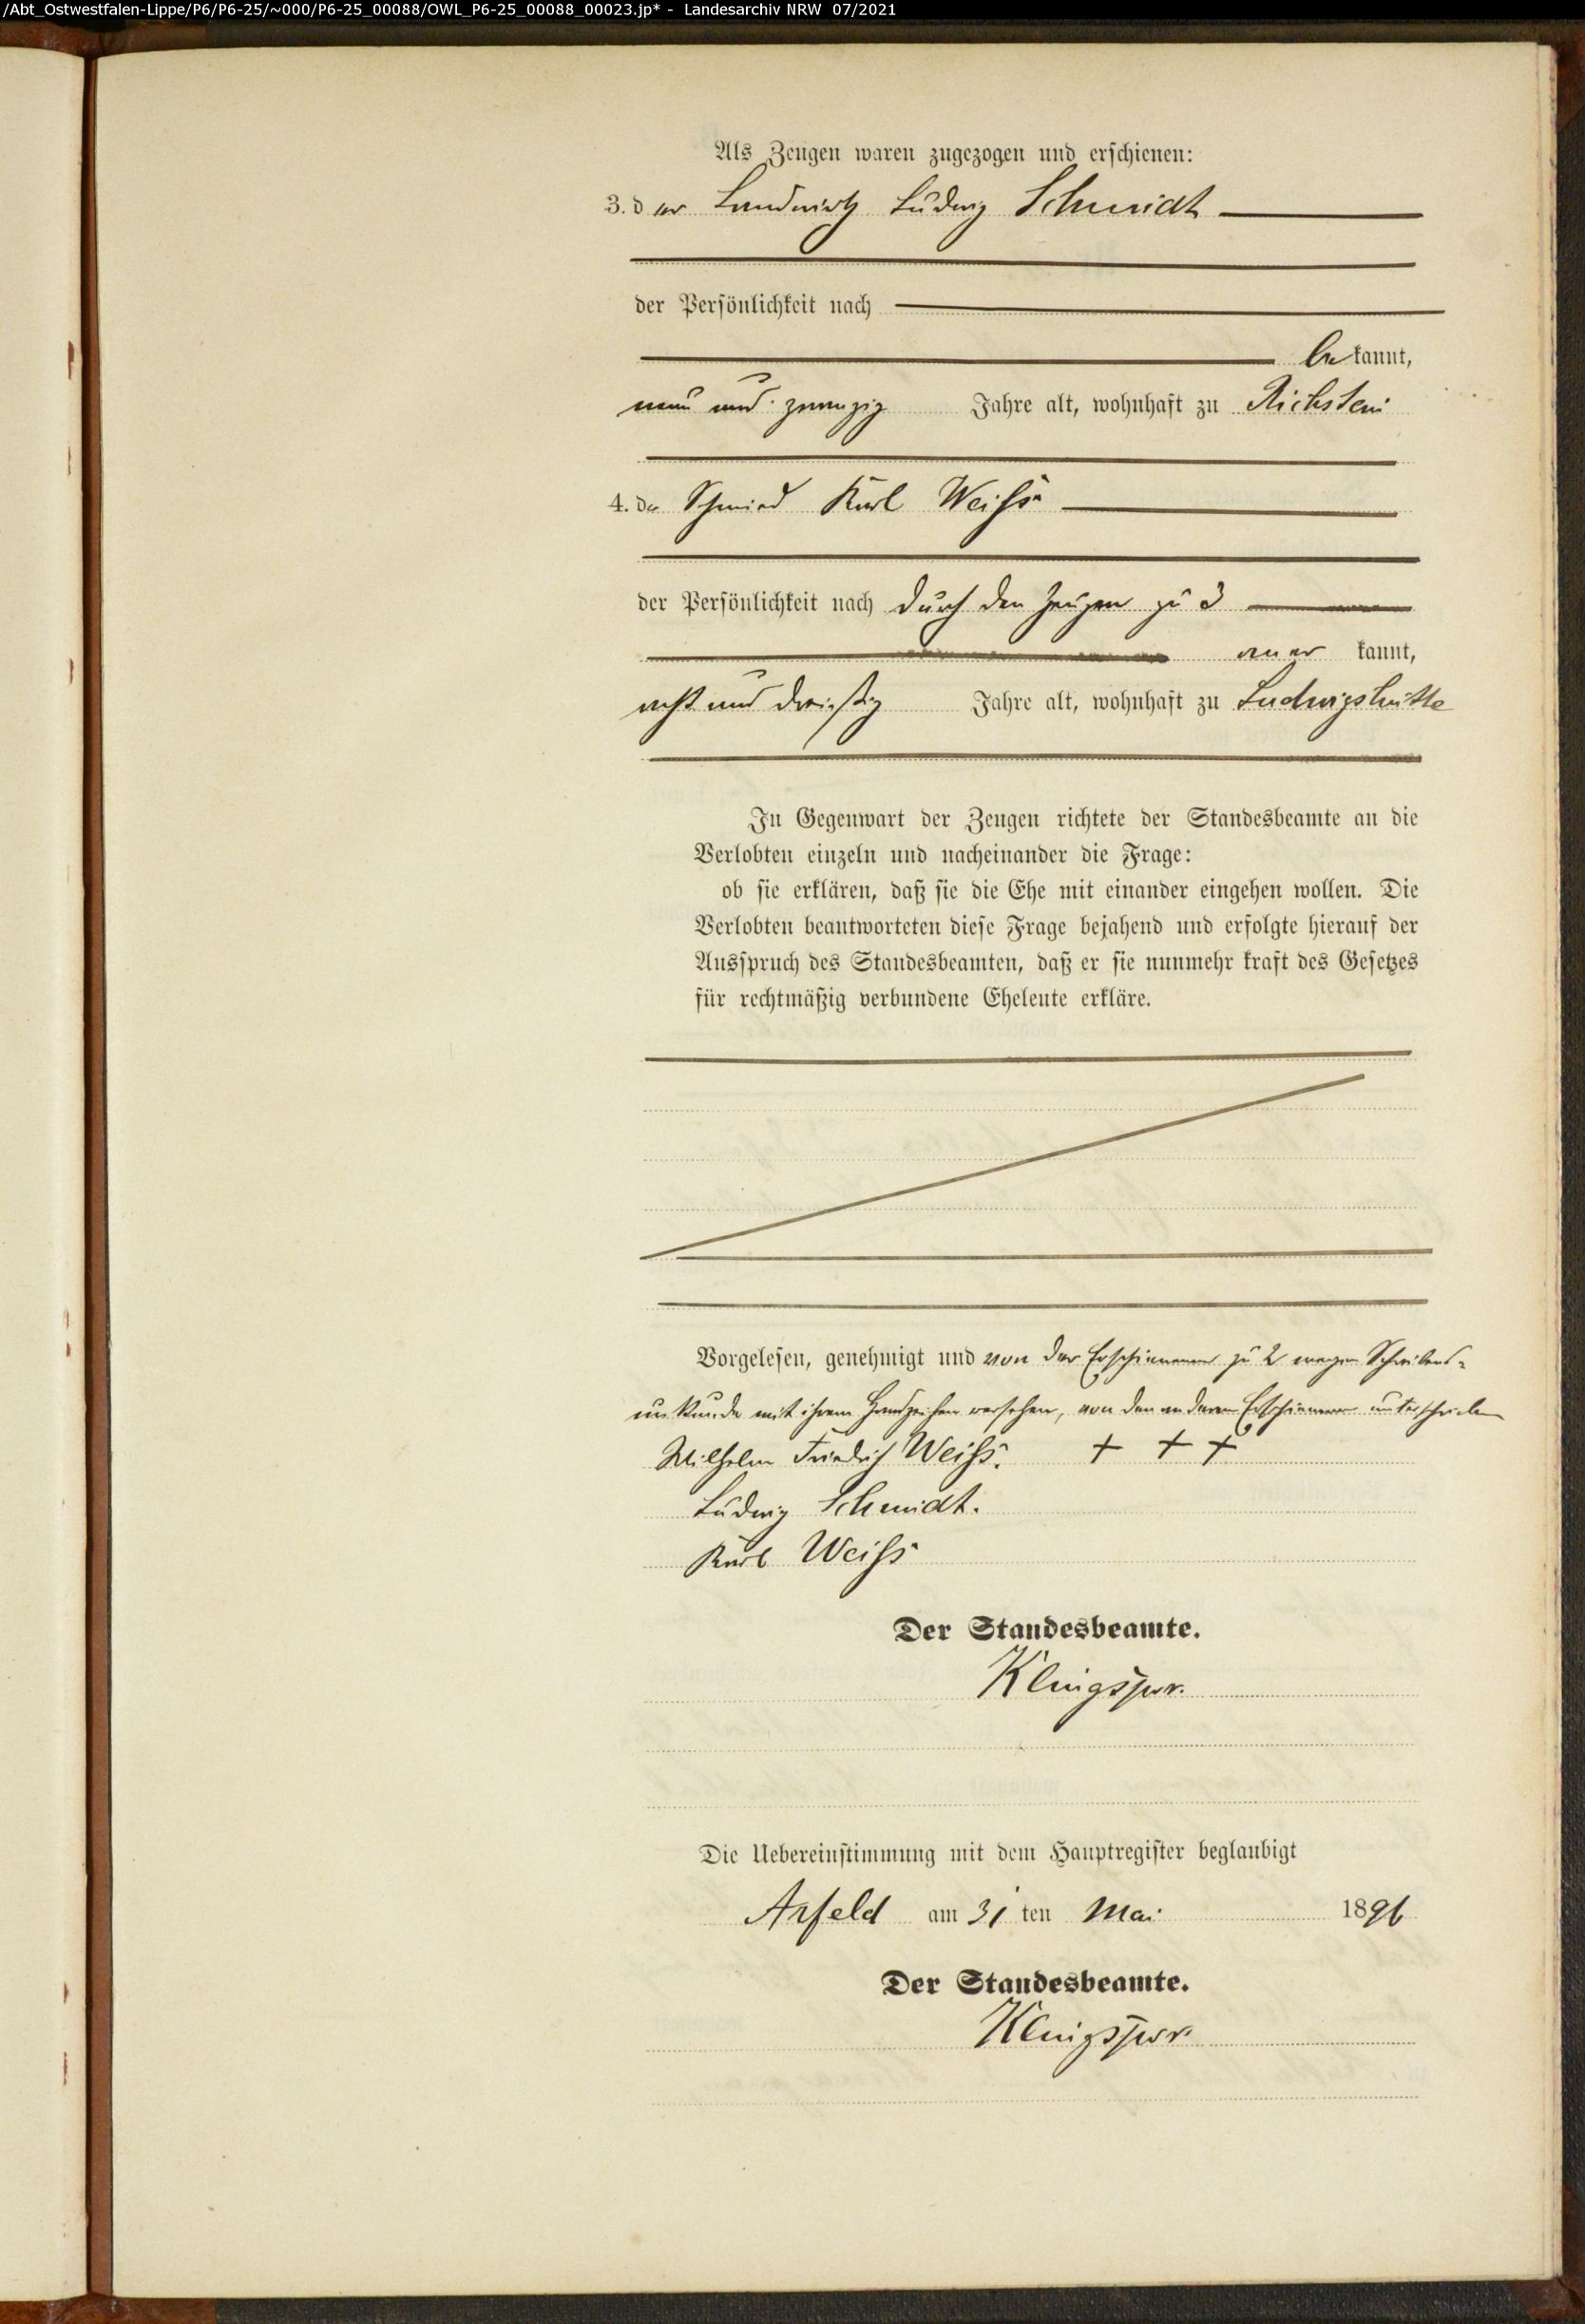 /Abt_Ostwestfalen-Lippe/P6/P6-25/~000/P6-25_00088/OWL_P6-25_00088_00023.jp* - Landesarchiv NRW 07/2021
Als Zeugen waren zugezogen und erschienen:
3. der Landwirth Ludwig Schmidt
der Persönlichkeit nach
bekannt,
neun und zwanzig Jahre alt, wohnhaft zu Richstein
4. der Schmied Karl Weiß
der Persönlichkeit nach durch den Zeugen zu 3
aner kannt,
acht und dreißig Jahre alt, wohnhaft zu Ludwigshütte
In Gegenwart der Zeugen richtete der Standesbeamte an die
Verlobten einzeln und nacheinander die Frage:
ob sie erklären, daß sie die Ehe mit einander eingehen wollen. Die
Verlobten beantworteten diese Frage bejahend und erfolgte hierauf der
Ausspruch des Standesbeamten, daß er sie nunmehr kraft des Gesetzes
für rechtmäßig verbundene Eheleute erkläre.
Vorgelesen, genehmigt und von der Erschienenen zu 2 wegen Schreibens-
unkunde mit ihrem Handzeichen versehen, von den anderen Erschienenen unterschrieben
Wilhelm Friedrich Weiß. + + +
Ludwig Schmidt.
Karl Weiß
Der Standesbeamte.
Klingspor.
Die Uebereinstimmung mit dem Hauptregister beglaubigt
Arfeld am 31 ten Mai 1896
Der Standesbeamte.
Klingspor